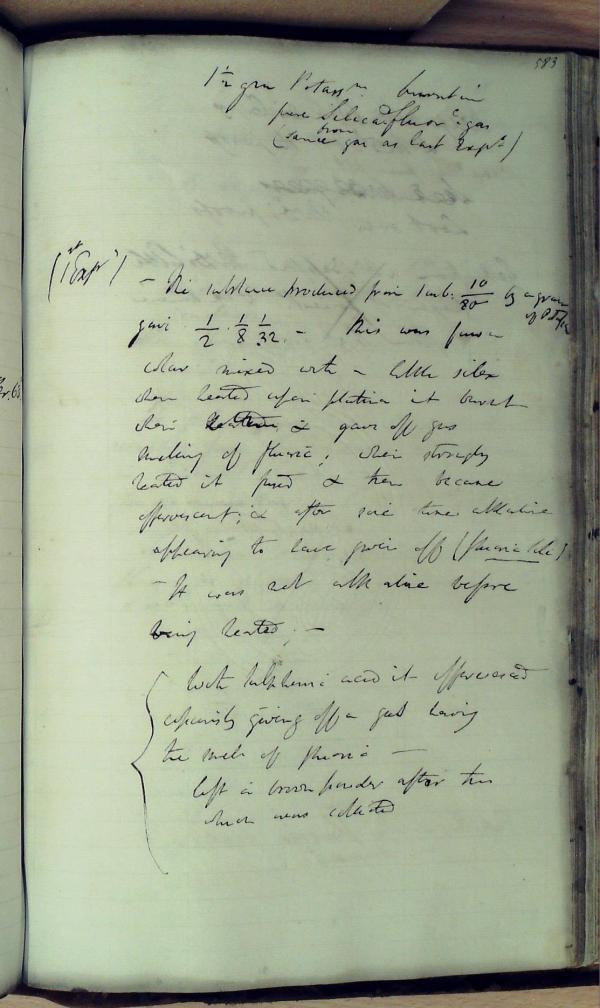 583
1 1/2 grn Potassm. burnt in
pure Silicated fluoric gas
(same gas as last Expt)
from
(1st Expt)
— The substance produced from 1 cub: 10/80 by a grain
of Potassm
gave 1/2 . 1/8 1/32. — this was fawn
colour mixed with a little silex
when heated upon platina it burnt
when & gave off gas
smelling of fluoric; when strongly
heated it fused & then became
effervescent; & after some time alkaline
appearing to have given off (fluoric)
— It was not alkaline before
being heated; —
With sulphuric acid it effervesced
copiously giving off a gas having
the smell of fluoric —
left a brown powder after this
which was collected